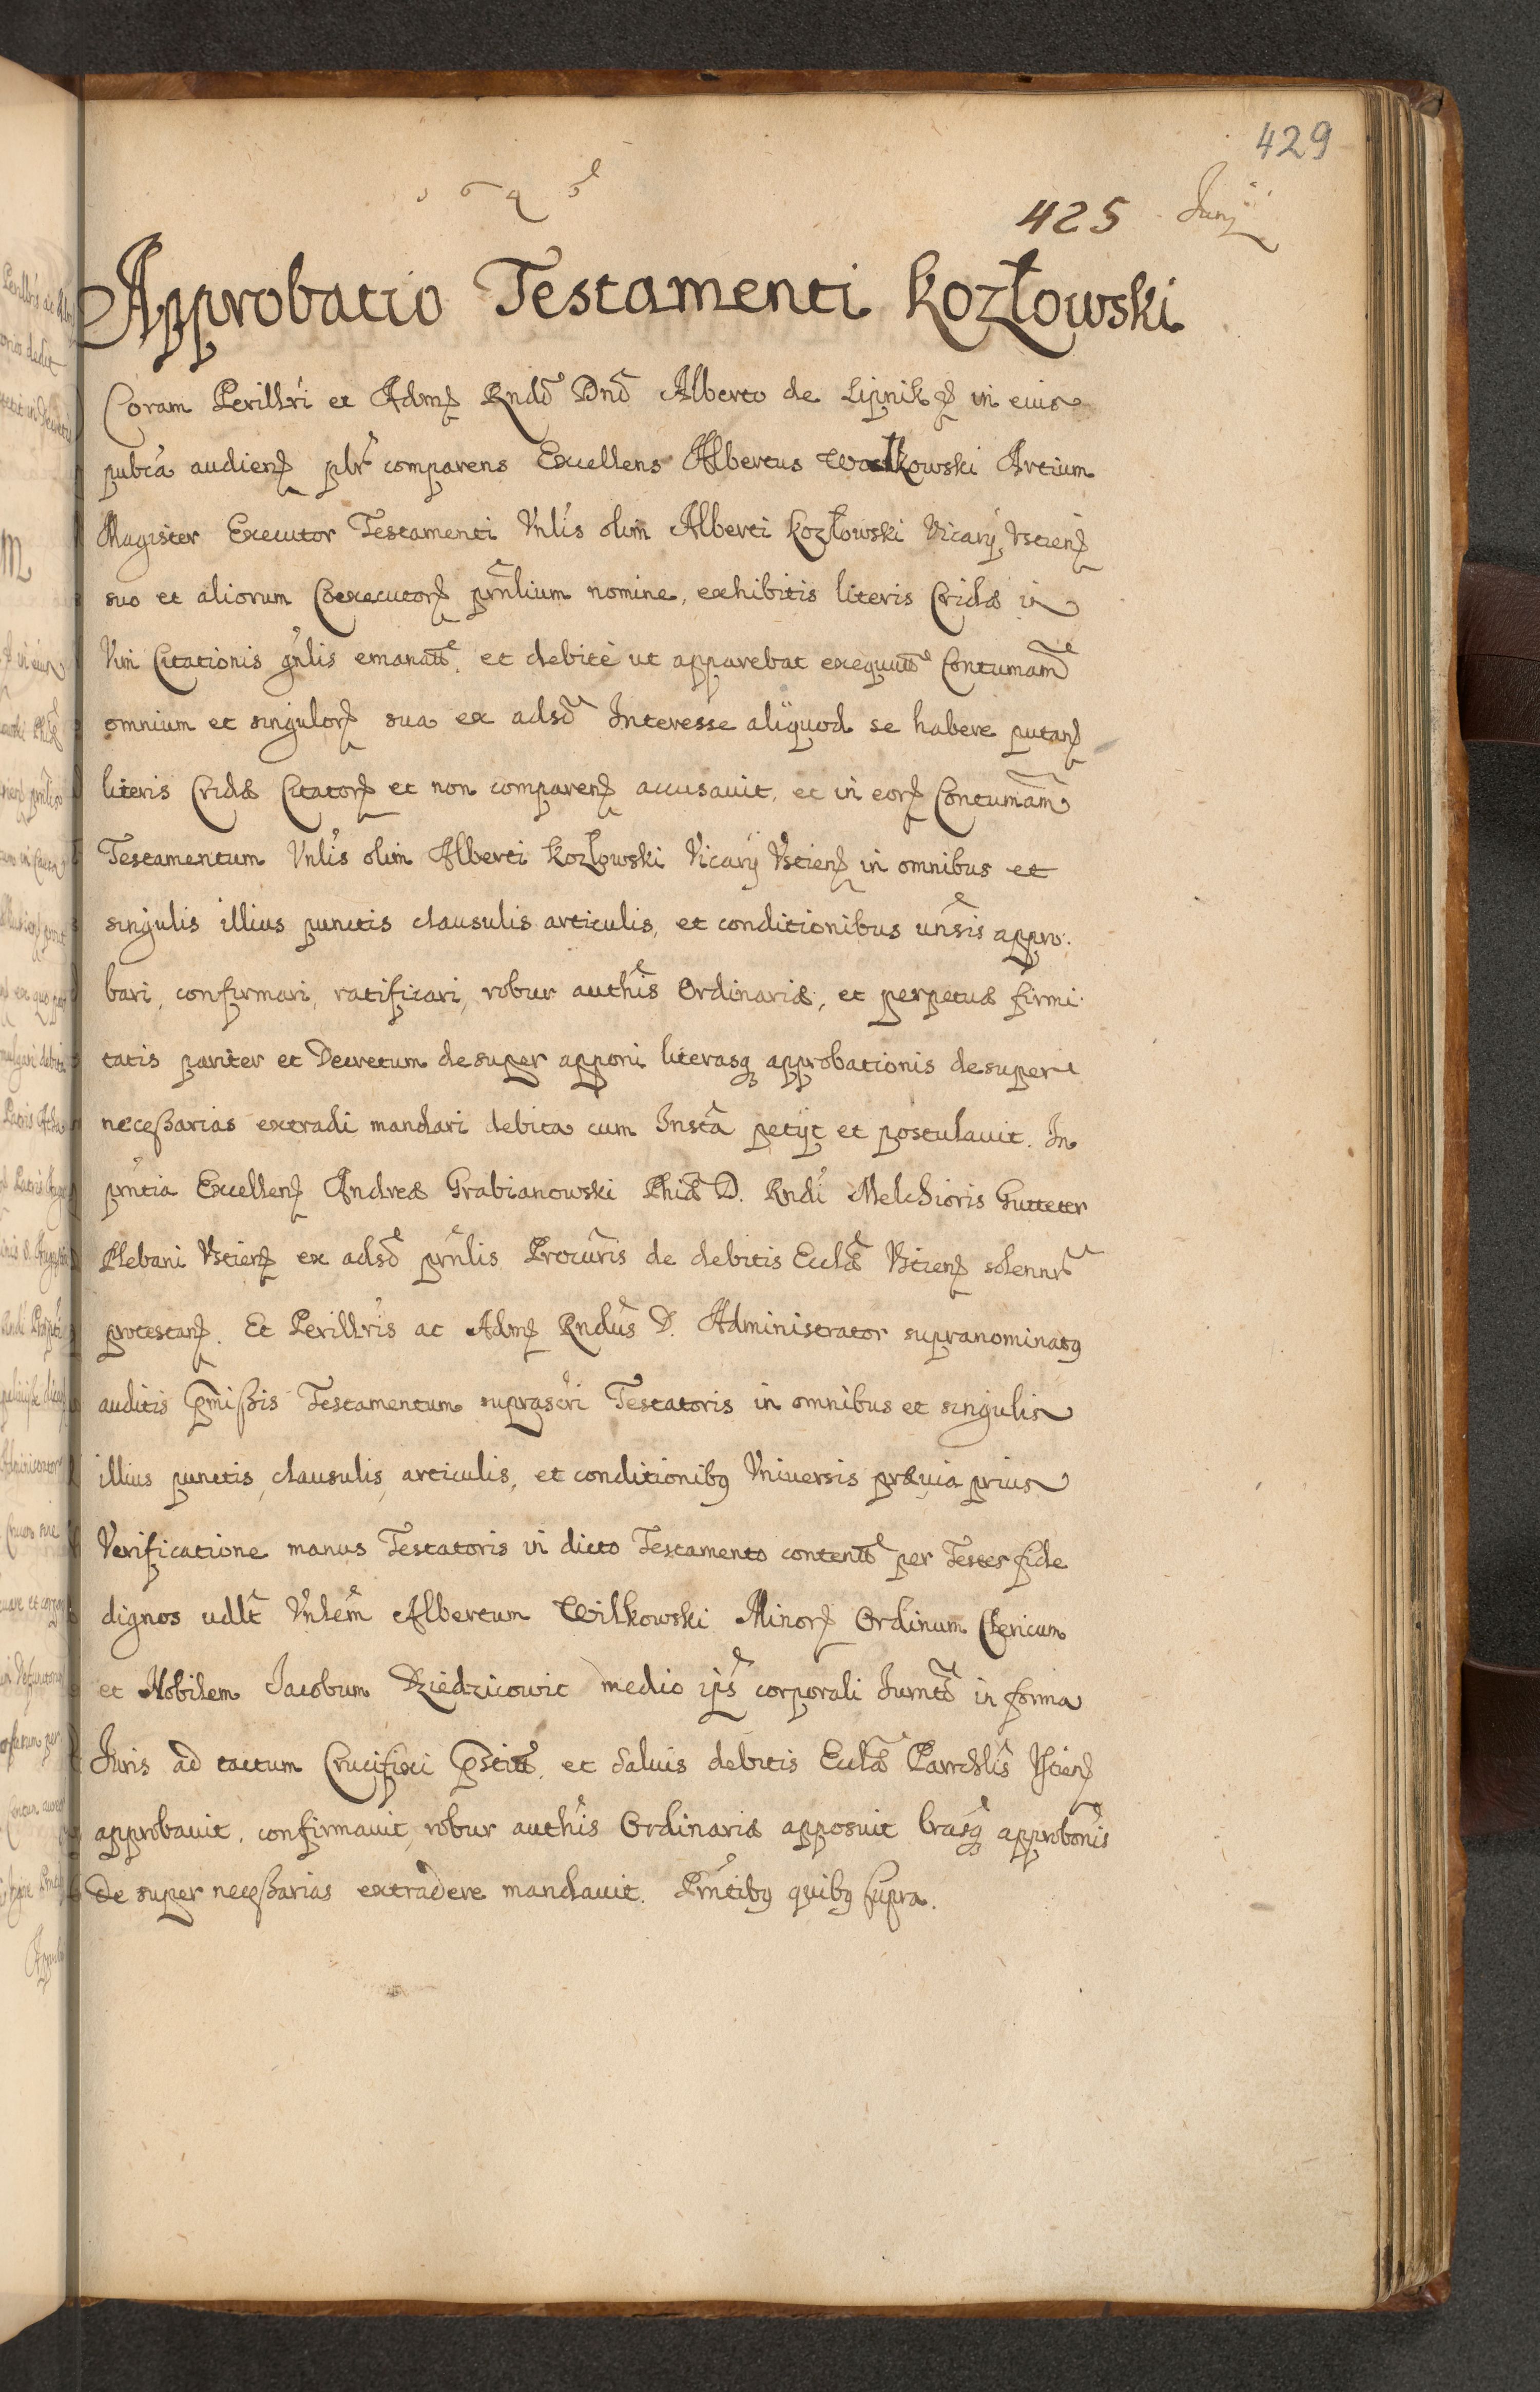 429
425 Junij
Approbatio Testamenti Kozłowski
Coram Perillri et Admꝝ Rndo Dno Alberto de Lipnikꝝ in eius
pubca audienꝝ plr comparens Excellens Albertus Wosłkowski Artium
Magister Executor Testamenti Vnlis olim Alberti Kozłowski Vicarij Vstienꝝ
suo et aliorum Coexecutorꝝ prnlium nomine, exhibitis literis Cridæ in
Vim Citationis gnlis emanatis, et debitè ut apparebat exequutis Contumam
omnium et singulorꝝ sua ex adso Interesse aliquod se habere putanꝝ
literis Cridæ Citatorꝝ et non comparenꝝ accusavit, et in eorꝝ Contumam
Testamentum Vnlis olim Alberti Kozłowski Vicarij Vstienꝝ in omnibus et
singulis illius punctis clausulis articulis, et conditionibus unsis appro-
bari, confirmari, ratificari, robur authis Ordinariæ, et perpetuæ firmi-
tatis pariter et Decretum desuper apponi literasqꝫ approbationis desuper
necessarias extradi mandari debita cum Insta petijt et postulavit. In
prntia Excellenꝝ Andreæ Grabianowski Phiæ D. Rndi Melchioris Gutteter
Plebani Vstienꝝ ex adso prnlis Procuris de debitis Eccłæ Vstienꝝ solennr
protestanꝝ. Et Perillris ac Admꝝ Rndus D. Administrator supranominatꝰ
auditis pmissis Testamentum suprascri Testatoris in omnibus et singulis
illius punctis, clausulis, articulis, et conditionibꝰ Vniversis prævia prius
Verificatione manus Testatoris in dicto Testamento contentis per Testes fide
dignos vdlt Vnlem Albertum Wilkowski Minorꝝ Ordinum Clericum
et Nobilem Jacobum Dziedzicowic medio ips corporali Jurnto in forma
Juris ad tactum Crucifixi pstito, et salvis debitis Eccłæ Parochlis Vstienꝝ
approbavit, confirmavit, robur authis Ordinariæ apposuit lrasqꝫ approbonis
De super necessarias extradere mandavit. Prntibꝰ quibꝰ supra.